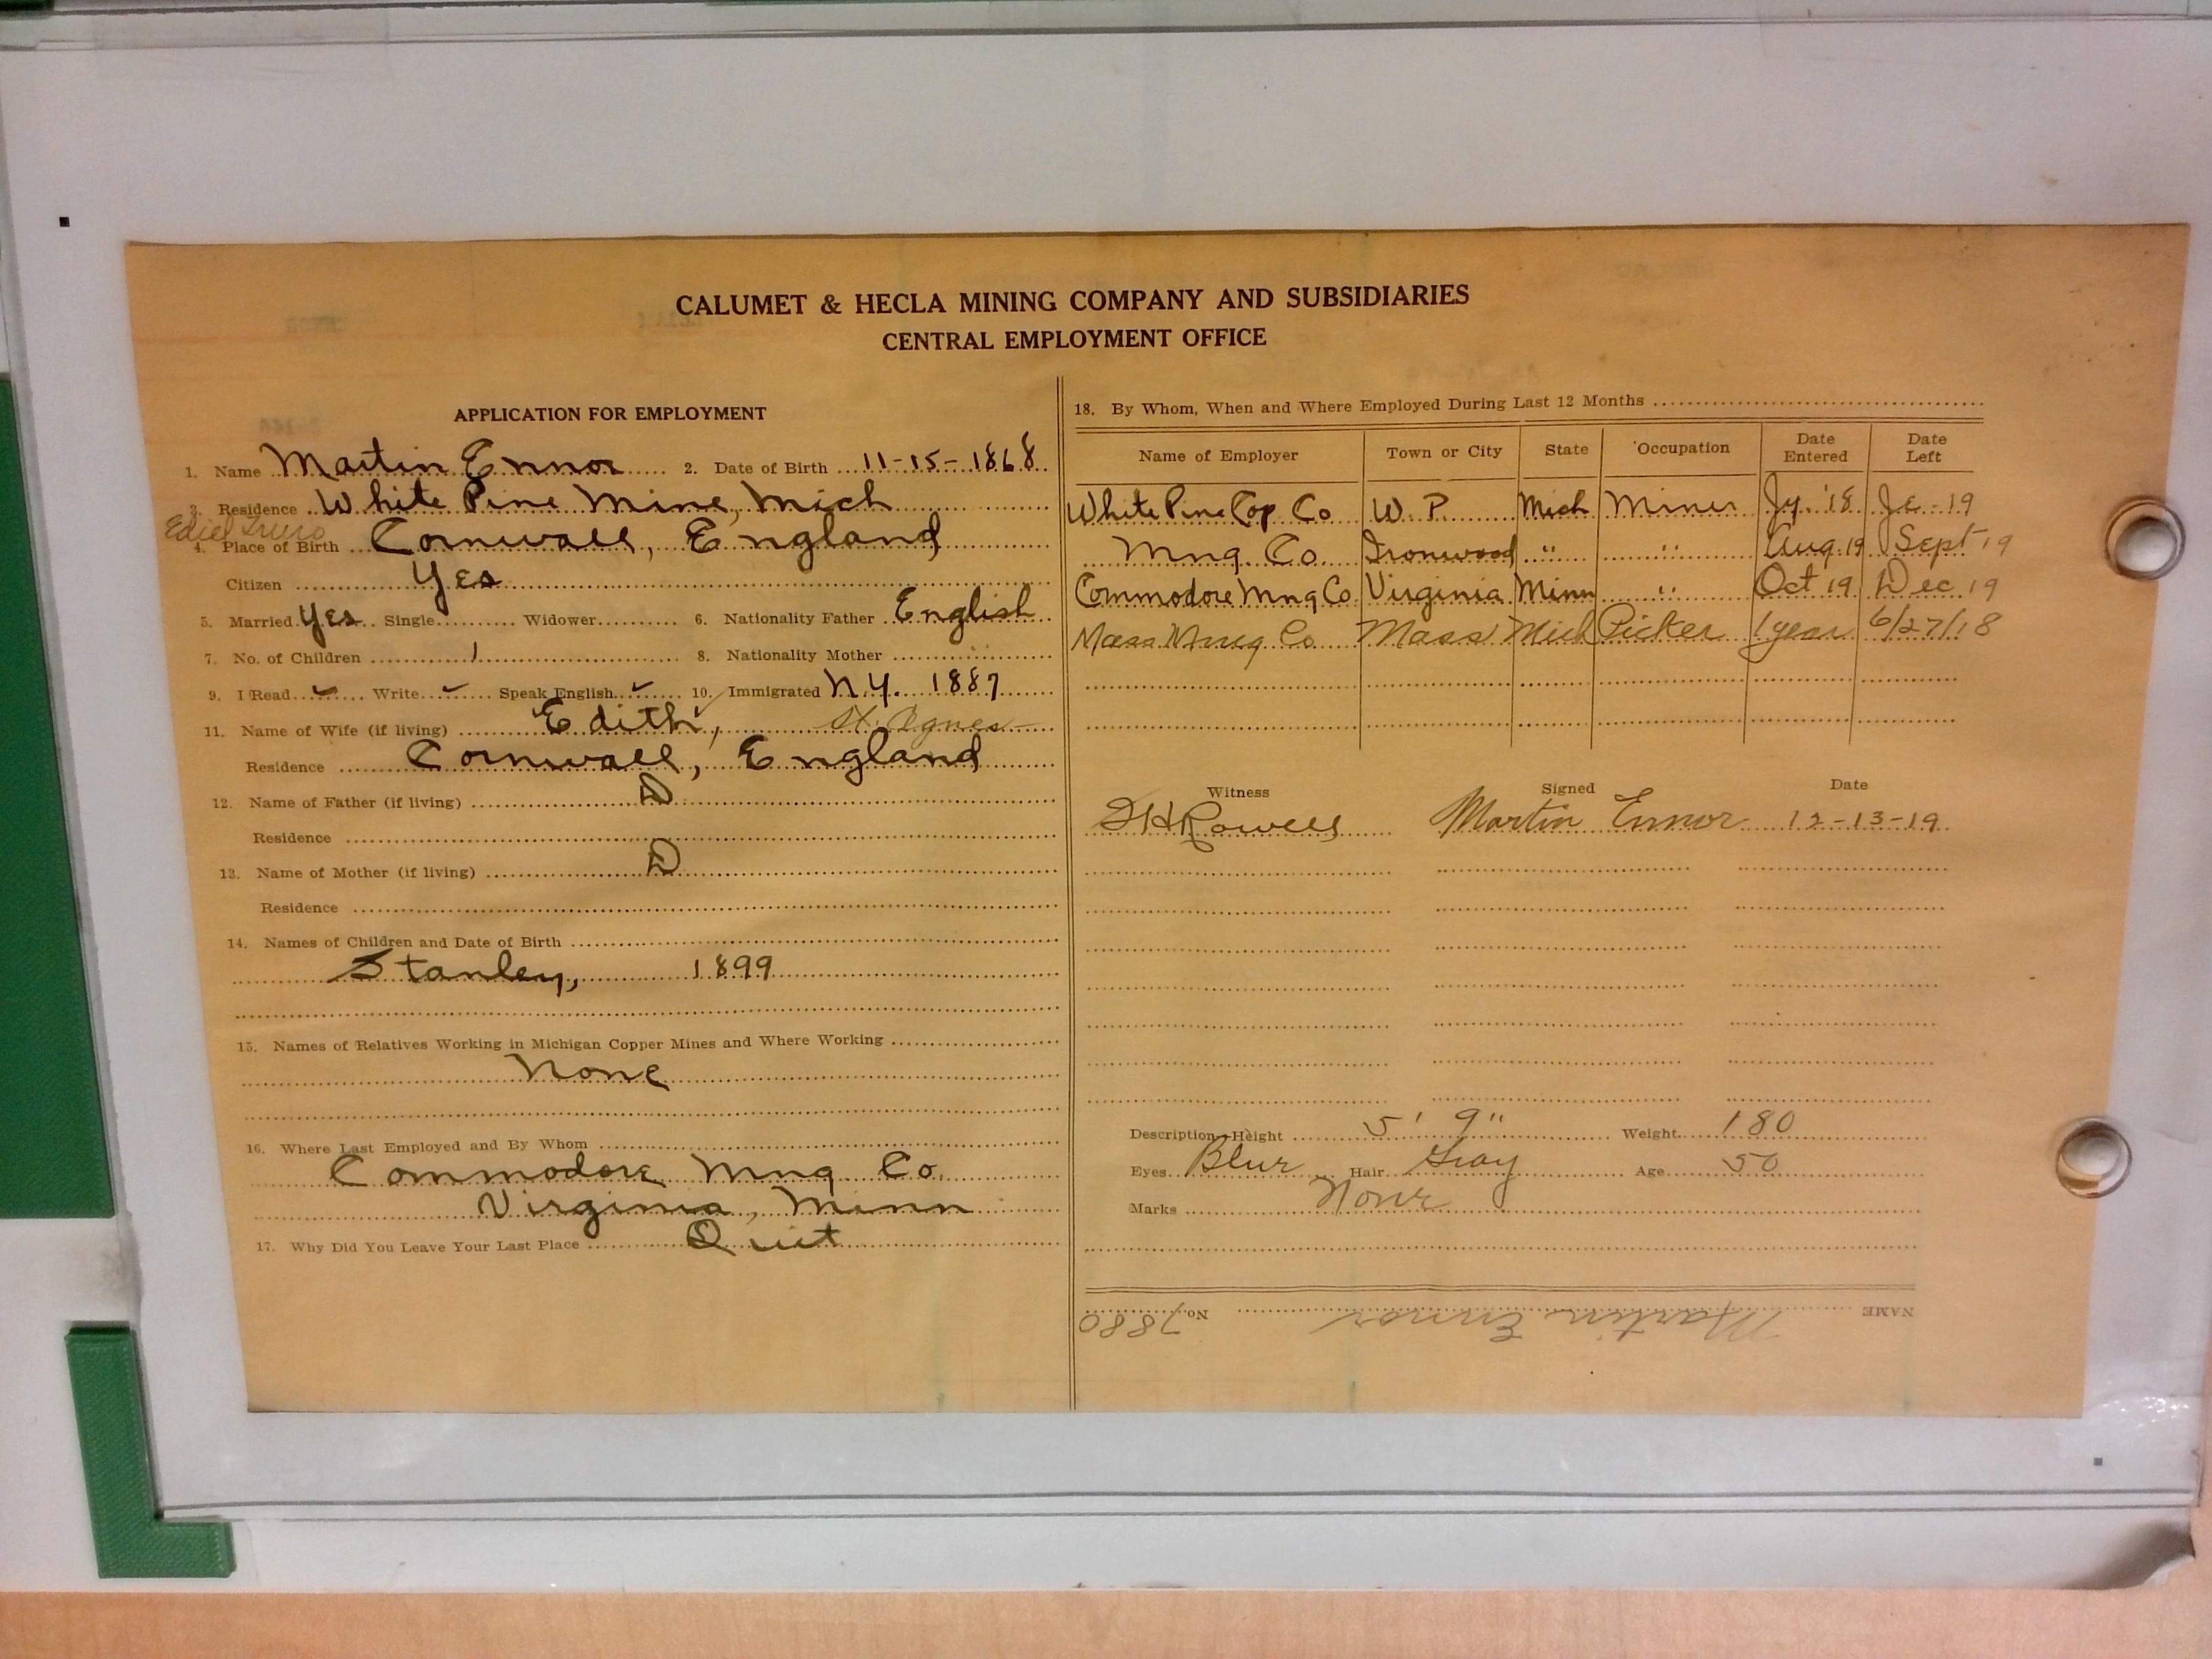 CALUMET & HECLA MINING COMPANY AND SUBSIDIARIES
CENTRAL EMPLOYMENT OFFICE
APPLICATION FOR EMPLOYMENT
1. Name Martin Ennor 2. Date of Birth 11-15-1868
3. Residence White Pine Mine, Mich
Truro
4. Place of Birth Cornwall, England
Citizen Yes
5. Married Yes Single Widower 6. Nationality Father English
7. No. of Children 1 8. Nationality Mother "
9. I Read ✓ Write ✓ Speak English ✓ 10. Immigrated N.Y. 1887
11. Name of Wife (if living) Edith, St. Agnes
Residence Cornwall, England
12. Name of Father (if living) D
Residence
13. Name of Mother (if living) D
Residence
14. Names of Children and Date of Birth
Stanley, 1899
15. Names of Relatives Working in Michigan Copper Mines and Where Working
None
16. Where Last Employed and By Whom
Commodore Mng. Co.
Virginia, Minn
17. Why Did You Leave Your Last Place Quit
18. By Whom, When and Where Employed During Last 12 Months
Name of Employer Town or City State Occupation Date Entered Date Left
White Pine Cop Co W. P. Mich Miner Jy. '18 Je - 19
Mng. Co. Ironwood " " Aug. 19 Sept 19
Commodore Mng Co Virginia Minn " Oct 19 Dec 19
Mass Mng Co. Mass Mich Picker 1 year 6/27/18
Witness Signed Date
Martin Ennor 12-13-19
Description—Height 5' 9" Weight 180
Eyes Blue Hair Gray Age 50
Marks None
NAME Martin Ennor No. 7880